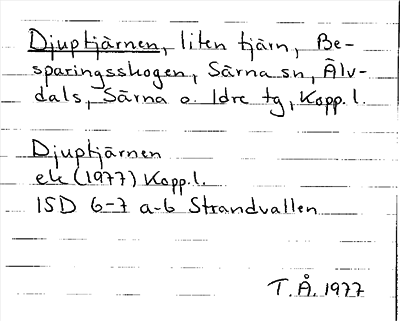 Djuptjärnen, liten tjärn, Be-
sparingsskogen, Särna sn, Älv-
dals, Särna o. Idre tg, Kopp. l.
Djuptjärnen
ek (1977) Kopp. l.
ISD 6-7 a-b Strandvallen
T. Å. 1977